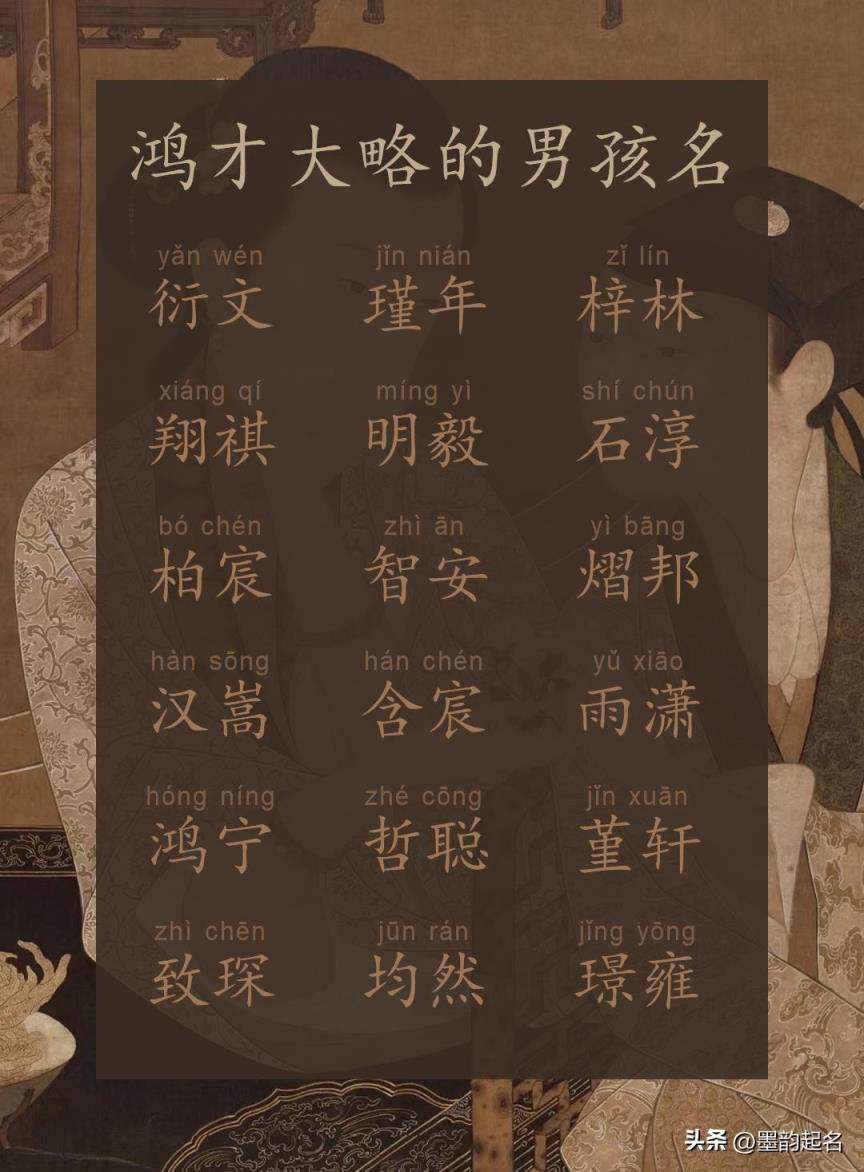 鸿才大略的男孩名
yǎn wén jǐn nián zǐ lín
衍文 瑾年 梓林
xiáng qí míng yì shí chún
翔祺 明毅 石淳
bó chén zhì ān yì bāng
柏宸 智安 熠邦
hàn sōng hán chén yǔ xiāo
汉嵩 含宸 雨潇
hóng níng zhé cōng jǐn xuān
鸿宁 哲聪 堇轩
zhì chēn jūn rán jǐng yōng
致琛 均然 璟雍
头条 @墨韵起名